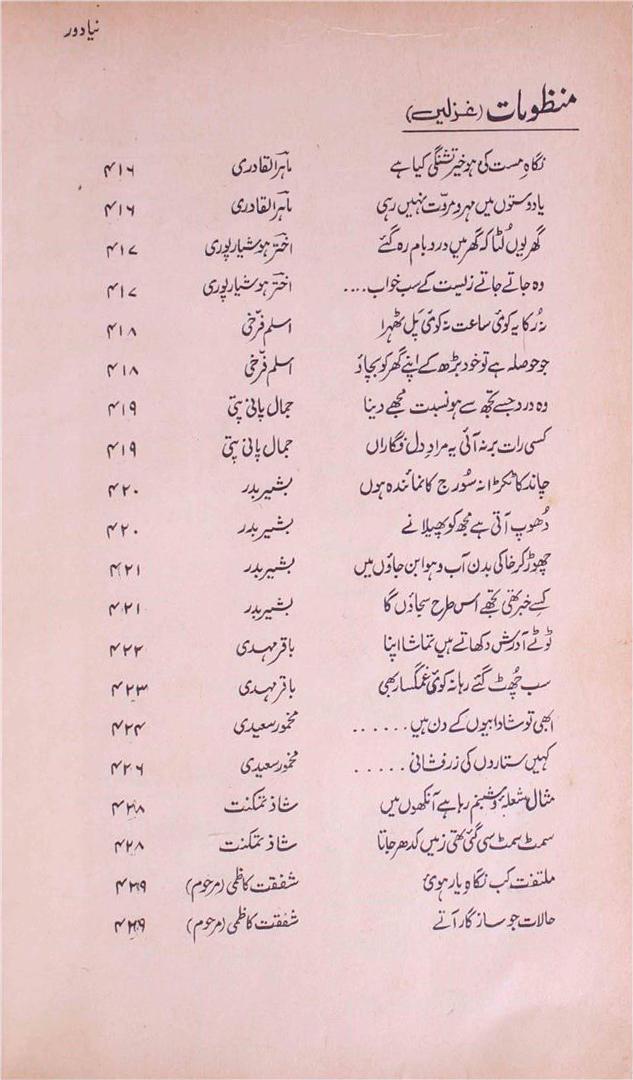 نیا دور
منظومات (غزلیں)
نگاہِ مست کی ہو خیر تشنگی کیا ہے ماہر القادری ۴۱۶
یا دوستوں میں مہر و مروّت نہیں رہی ماہر القادری ۴۱۶
گھر یوں لُٹا کہ گھر میں در و بام رہ گئے اختر ہوشیارپوری ۴۱۷
وہ جاتے جاتے زلیست کے سب خواب .... اختر ہوشیارپوری ۴۱۷
نہ رُکا یہ کوئی ساعت نہ کوئی پَل ٹھہرا اسلم فرّخی ۴۱۸
جو حوصلہ ہے تو خود بڑھ کے اپنے گھر کو بچاؤ اسلم فرّخی ۴۱۸
وہ درد جسے تجھ سے ہو نسبت مجھے دینا جمال پانی پتی ۴۱۹
کسی رات بر نہ آئی یہ مرادِ دل فگاراں جمال پانی پتی ۴۱۹
چاند کا ٹکڑا نہ سُورج کا نمائندہ ہوں بشیر بدر ۴۲۰
دُھوپ آتی ہے مجھ کو پھیلانے بشیر بدر ۴۲۰
چھوڑ کر خاکی بدن آب و ہوا بن جاؤں میں بشیر بدر ۴۲۱
کسے خبر تھی تجھے اس طرح سجاؤں گا بشیر بدر ۴۲۱
ٹوٹے آدرش دکھاتے ہیں تماشا اپنا باقر مہدی ۴۲۲
سب چُھٹ گئے رہا نہ کوئی غمگسار بھی باقر مہدی ۴۲۳
ابھی تو شادابیوں کے دن ہیں ...... مخمور سعیدی ۴۲۴
کہیں ستاروں کی زرفشانی ..... مخمور سعیدی ۴۲۶
مثالِ شعلہ و شبنم رہا ہے آنکھوں میں شاذ تمکنت ۴۲۸
سمٹ سمٹ سی گئی تھی زمیں کدھر جاتا شاذ تمکنت ۴۲۸
ملتفت کب نگاہِ یار ہوئی شفقت کاظمی (مرحوم) ۴۲۹
حالات جو سازگار آتے شفقت کاظمی (مرحوم) ۴۲۹